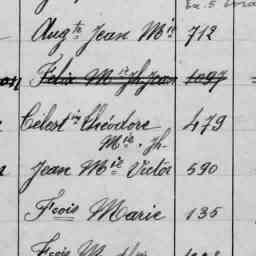 Augte Jean Mie 712
Felix Mie Jh Jean 1097
Célestin Théodore 479
Mie. Jh.
Jean Mie Victor 590
Frois Marie 135
Frois